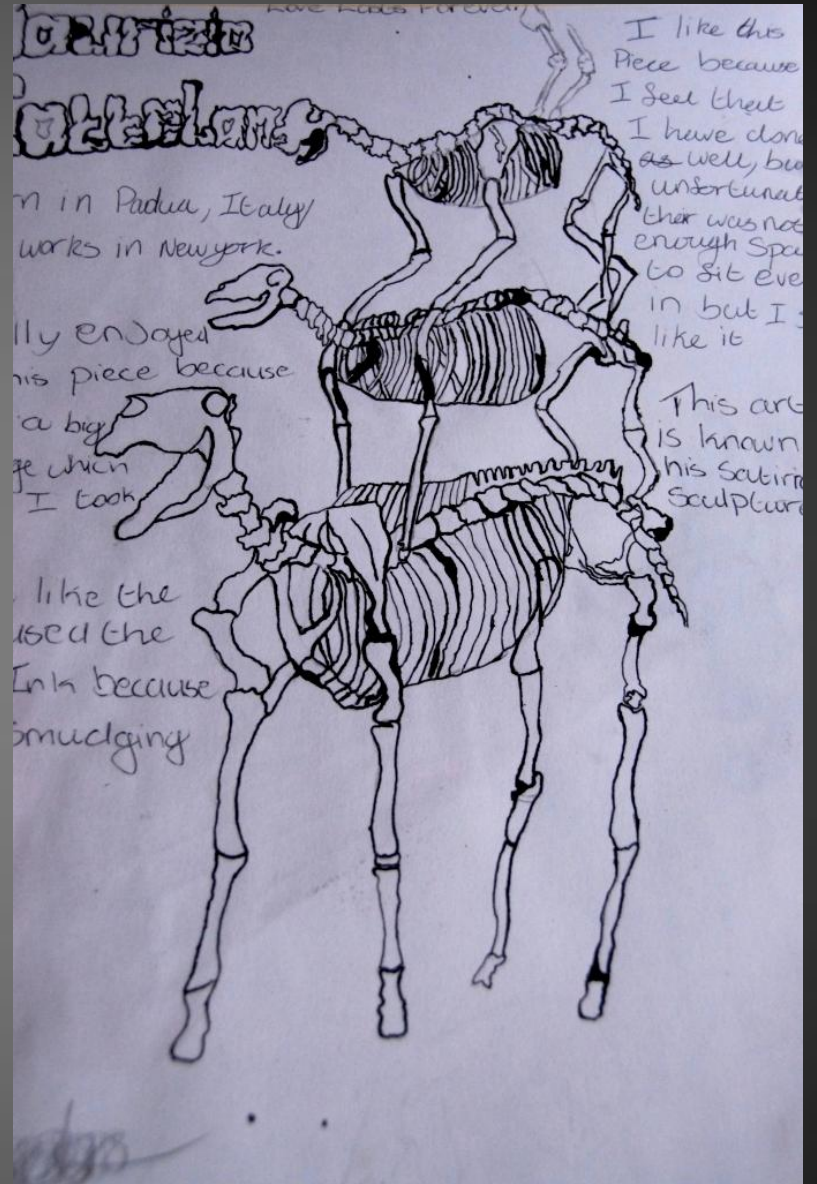 Love Lasts Forever
aurizio
attelan
n in Padua, Italy
works in Newyork.
lly enjoyed
his piece because
a big
ge which
I took
like the
used the
Ink because
smudging
I like this
Piece because
I feel that
I have done
as well, bu
unfortunat
ther was not
enough Spa
to fit eve
in but I s
like it
This art
is known
his Satiri
Sculptur